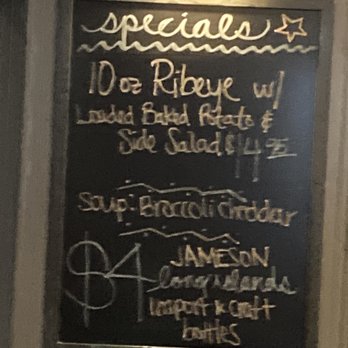 specials
10 oz Ribeye w/
Loaded Baked Potato &
Side Salad $14.95
Soup: Broccoli Cheddar
$4 JAMESON
long islands
import & craft
bottles